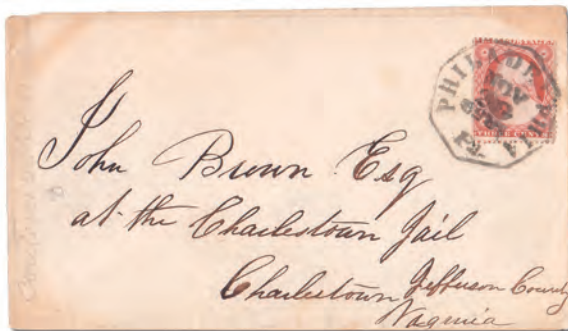 PHILADELPHIA
NOV
Pa
THREE CENTS
John Brown Esq
at the Charlestown Jail
Charlestown Jefferson County
Virginia